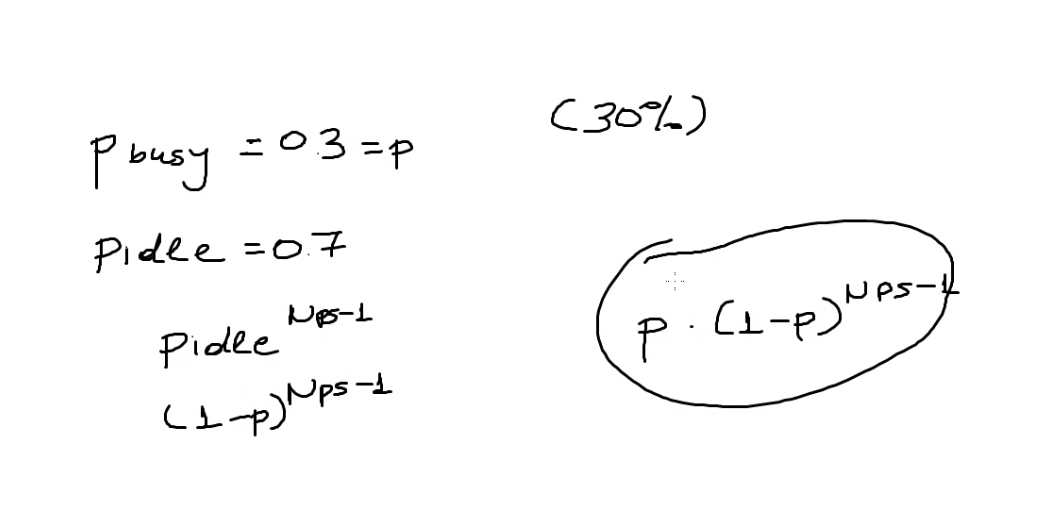 (30%)
p busy = 0.3 = p
pidle = 0.7
pidle^Nps-1
(1-p)^Nps-1
p · (1-p)^Nps-1